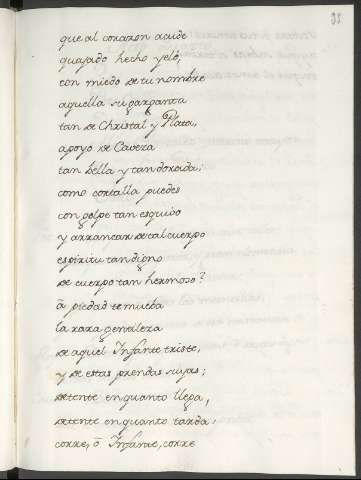 35
que al corazon acude
quajado hecho yelo,
con miedo de tu nombre
aquella su garganta
tan de Christal y Plata,
apoyo de Caveza
tan bella y tan dorada;
como cortalla puedes
con golpe tan esquivo
y arrancar de tal cuerpo
espiritu tan digno
de cuerpo tan hermoso?
ā piedad te mueba
la rara gentileza
de aquel Infante triste,
y de estas prendas suyas;
detente en quanto llega,
detente en quanto tarda:
corre, ō Infante, corre